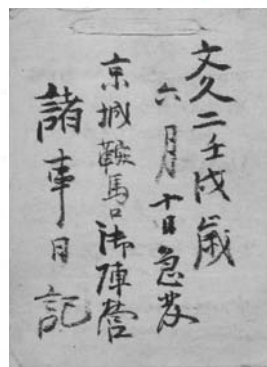 文久二壬戌歳
六月十日急発
京城鞍馬口御陣営
諸事日記